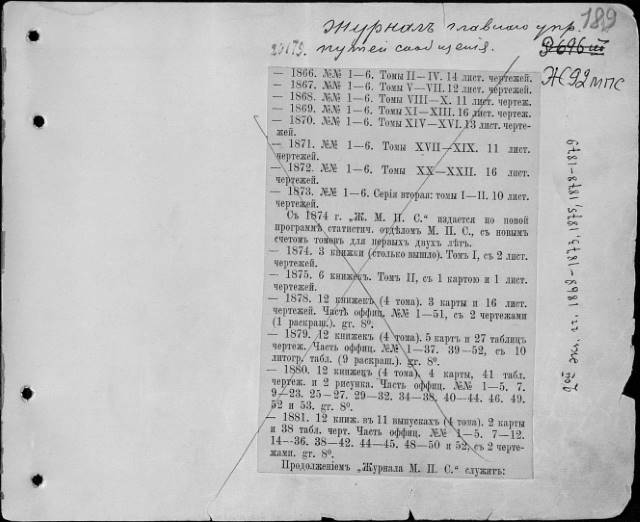 Журналъ главнаго упр.
путей сообщенія.
189
9696 III
Ж 92 МПС
— 1866. №№ 1—6. Томы II—IV. 14 лист. чертежей.
— 1867. №№ 1—6. Томы V—VII. 12 лист. чертежей.
— 1868. №№ 1—6. Томы VIII—X. 11 лист. чертеж.
— 1869. №№ 1—6. Томы XI—XIII. 16 лист. чертеж.
— 1870. №№ 1—6. Томы XIV—XVI. 13 лист. черте-
жей.
— 1871. №№ 1—6. Томы XVII—XIX. 11 лист.
чертежей.
— 1872. №№ 1—6. Томы XX—XXII. 16 лист.
чертежей.
— 1873. №№ 1—6. Серія вторая: томы I—II. 10 лист.
чертежей.
Съ 1874 г. „Ж. М. П. С.“ издается по новой
программѣ статистич. отдѣломъ М. П. С., съ новымъ
счетомъ томовъ для первыхъ двухъ лѣтъ.
— 1874. 3 книжки (столько вышло). Томъ I, съ 2 лист.
чертежей.
— 1875. 6 книжекъ. Томъ II, съ 1 картою и 1 лист.
чертежей.
— 1878. 12 книжекъ (4 тома). 3 карты и 16 лист.
чертежей. Часть оффиц. №№ 1—51, съ 2 чертежами
(1 раскраш.). gr. 8º.
— 1879. 12 книжекъ (4 тома). 5 картъ и 27 таблицъ
чертеж. Часть оффиц. №№ 1—37. 39—52, съ 10
литогр. табл. (9 раскраш.). gr. 8º.
— 1880. 12 книжекъ (4 тома). 4 карты, 41 табл.
чертеж. и 2 рисунка. Часть оффиц. №№ 1—5. 7.
9—23. 25—27. 29—32. 34—38. 40—44. 46. 49.
52 и 53. gr. 8º.
— 1881. 12 книж. въ 11 выпускахъ (4 тома). 2 карты
и 38 табл. черт. Часть оффиц. №№ 1—5. 7—12.
14—36. 38—42. 44—45. 48—50 и 52, съ 2 черте-
жами. gr. 8º.
Продолженіемъ „Журнала М. П. С.“ служитъ:
2ой экз. гг.